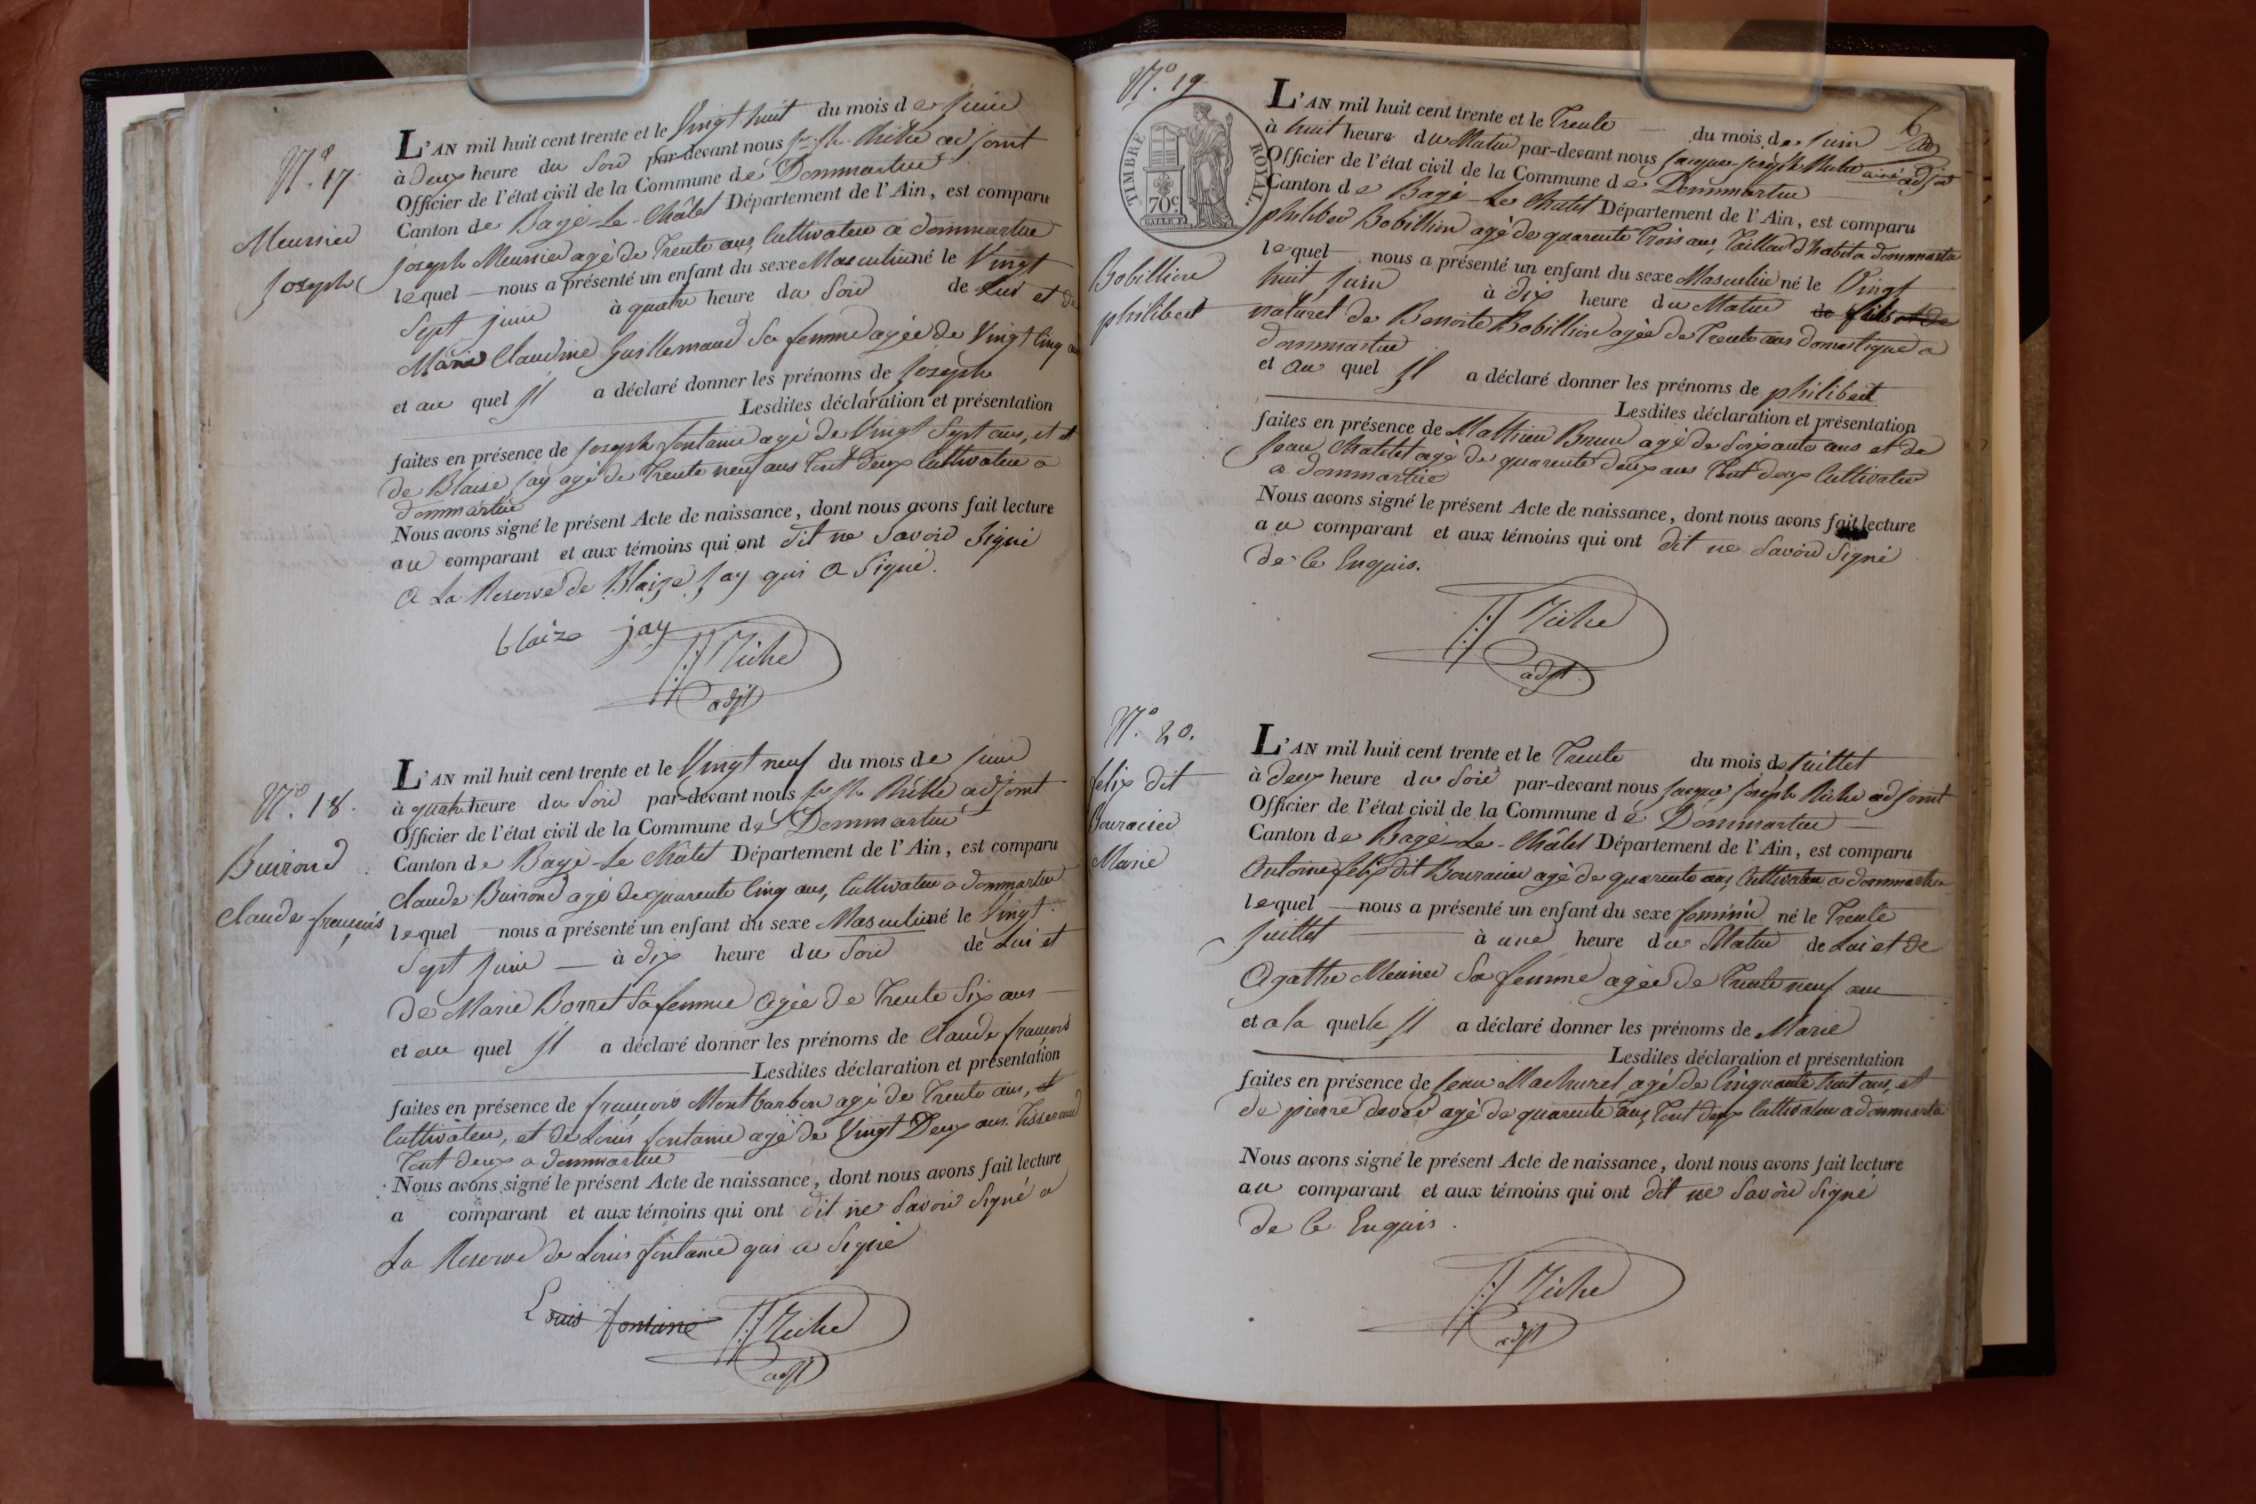 N.º 17.
Meunier
Joseph
L'AN mil huit cent trente et le Vingt huit du mois de Juin
à deux heure du Soir par-devant nous adjoint
Officier de l'état civil de la Commune de Dommartin
Canton de Bagé-Le-Châtel Département de l'Ain, est comparu
Joseph Meunier agé de Trente ans, Cultivateur a dommartin
lequel nous a présenté un enfant du sexe Masculin né le Vingt
Sept Juin à quatre heure du Soir de Lui et de
Marie Claudine Guillemaud Sa femme agée de Vingt Cinq ans
et au quel Il a déclaré donner les prénoms de Joseph
Lesdites déclaration et présentation
faites en présence de Joseph fontaine agé de Vingt Sept ans, et
de Blaise Jay agé de Trente neuf ans Tout deux Cultivateur a
dommartin
Nous avons signé le présent Acte de naissance, dont nous avons fait lecture
au comparant et aux témoins qui ont dit ne Savoir Signé
a La Reserve de Blaize Jay qui a Signé.
blaize jay
adjt
N.º 18.
Buirond
Claude-françois
L'AN mil huit cent trente et le Vingt neuf du mois de Juin
à quatre heure du Soir par-devant nous adjoint
Officier de l'état civil de la Commune de Dommartin
Canton de Bagé-Le-Châtel Département de l'Ain, est comparu
Claude Buirond agé de quarente Cinq ans, Cultivateur a dommartin
lequel nous a présenté un enfant du sexe Masculin né le Vingt
Sept Juin à dix heure du Soir de Lui et
de Marie Borret Sa femme agée de Trente Six ans
et au quel Il a déclaré donner les prénoms de Claude françois
Lesdites déclaration et présentation
faites en présence de françois Montbarbon agé de Trente ans,
Cultivateur, et de Louis fontaine agé de Vingt Deux ans. Tisserand
Tout deux a dommartin
Nous avons signé le présent Acte de naissance, dont nous avons fait lecture
a comparant et aux témoins qui ont dit ne Savoir Signé a
La Reserve de Louis fontaine qui a Signé
Louis fontaine
adjt
N.º 19.
TIMBRE ROYAL.
70c
6
Bobillion
philibert
L'AN mil huit cent trente et le Trente du mois de Juin
à huit heure du Matin par-devant nous Jacques Joseph
Officier de l'état civil de la Commune de Dommartin
Canton de Bagé-Le-Chatel Département de l'Ain, est comparu
philibert Bobillion agé de quarente Trois ans, Tailleur D'habit a dommartin
lequel nous a présenté un enfant du sexe Masculin né le Vingt
huit Juin à dix heure du Matin de fils et de
naturel de Benoite Bobillion agée de Trente ans domestique a
dommartin
et au quel Il a déclaré donner les prénoms de philibert
Lesdites déclaration et présentation
faites en présence de Mathieu Brun agé de Soixante ans et de
Jean Chatelet agé de quarente deux ans Tout deux Cultivateur
a dommartin
Nous avons signé le présent Acte de naissance, dont nous avons fait lecture
au comparant et aux témoins qui ont dit ne Savoir Signé
de Ce Enquis.
adjt
N.º 20.
felix dit
Bouracier
Marie
L'AN mil huit cent trente et le Trente du mois de Juillet
à deux heure du Soir par-devant nous Jacque Joseph adjoint
Officier de l'état civil de la Commune de Dommartin
Canton de Bagé-Le-Châtel Département de l'Ain, est comparu
Antoine felix dit Bouracier agé de quarente ans, Cultivateur a dommartin
lequel nous a présenté un enfant du sexe feminin né le Trente
Juillet à une heure du Matin de Lui et de
Agathe Meunier Sa femme agée de Trente neuf ans
et a la quelle Il a déclaré donner les prénoms de Marie
Lesdites déclaration et présentation
faites en présence de Jean Machurel agé de Cinquante huit ans, et
de pierre agé de quarente ans, Tout deux Cultivateur a dommartin
Nous avons signé le présent Acte de naissance, dont nous avons fait lecture
au comparant et aux témoins qui ont dit ne Savoir Signé
de Ce Enquis.
adjt